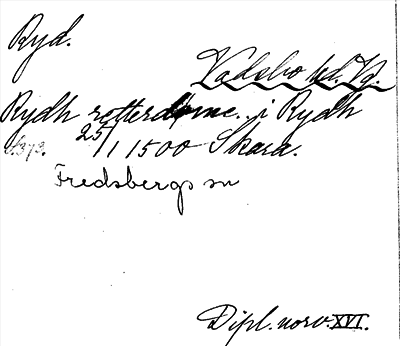 Ryd.
Vadsbo hd. Vg.
Rydh retterdöme.. i Rydh
s. 373. 25/1 1500 Skara.
Fredsbergs sn
Dipl. norv. XVI.